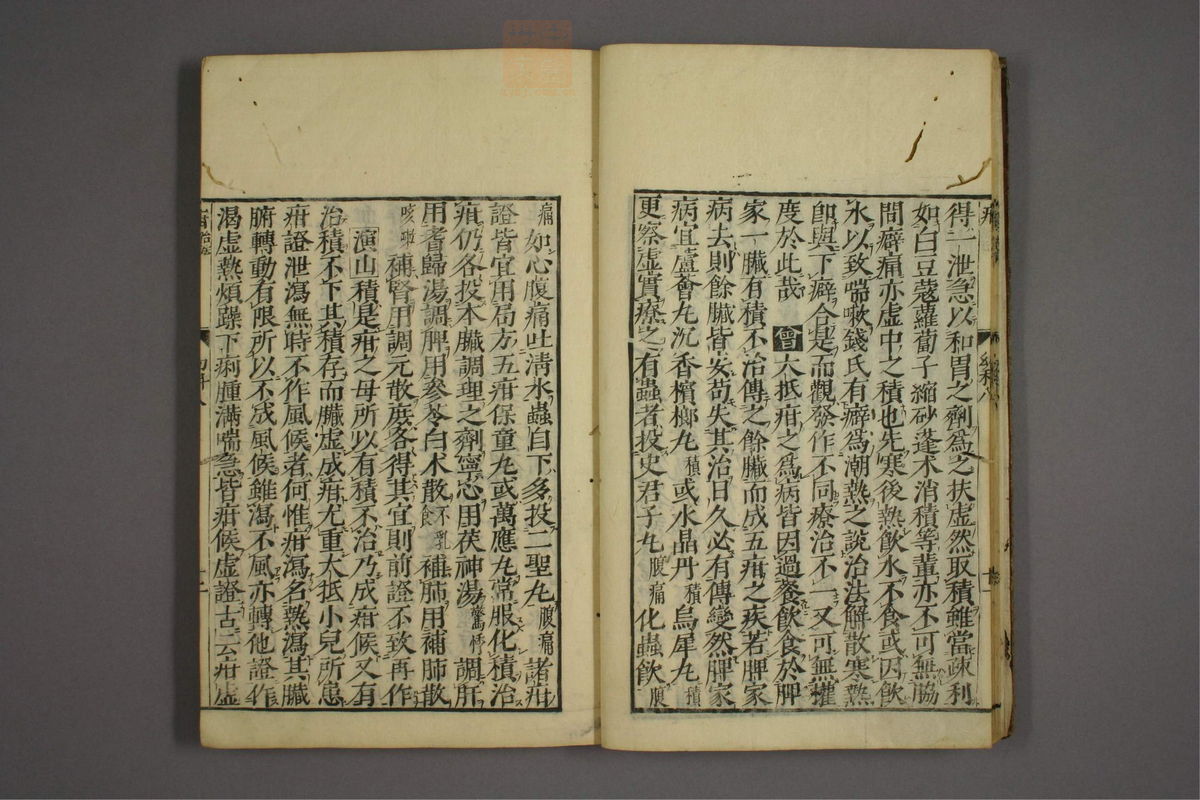 得一泄急以和胃之劑爲之扶虛然取積雖當疎利
如白豆蔲蘿蔔子縮砂蓬术消積等輩亦不可無脇
間癖痛亦虛中之積也先寒後熱飲水不食或因飲
水以致喘嗽錢氏有癖爲潮熱之說治法解散寒熱
卽與下癖合是而觀發作不同療治不一又可無權
度於此哉 曾 大抵疳之爲病皆因過餐飲食於脾
家一臟有積不治傳之餘臟而成五疳之疾若脾家
病去則餘臟皆安苟失其治日久必有傳變然脾家
病宜蘆薈丸沉香檳榔丸積或水晶丹積烏犀丸積
更察虛實療之有蟲者投史君子丸腹痛化蟲飲腹
痛如心腹痛吐淸水蟲自下多投二聖丸腹痛諸疳
證皆宜用局方五疳保童丸或萬應丸常服化積治
疳仍各投本臟調理之劑寧心用茯神湯驚悸調肝
用耆歸湯調脾用參苓白术散不乳食補肺用補肺散
咳嗽補腎用調元散庶各得其宜則前證不致再作
演山積是疳之母所以有積不治乃成疳候又有
治積不下其積存而臟虛成疳尤重大抵小兒所患
疳證泄瀉無時不作風候者何惟疳瀉名熱瀉其臟
腑轉動有限所以不成風候雖瀉不風亦轉他證作
渴虛熱煩躁下痢腫滿喘急皆疳候虛證古云疳虛